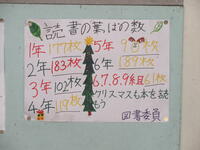 読書の葉、ぱの数
1年177枚 5年9枚
2年183枚 6年189枚
3年102枚 6.7.8.9組61枚
4年19枚 クリスマスも本を読もう
図書委員